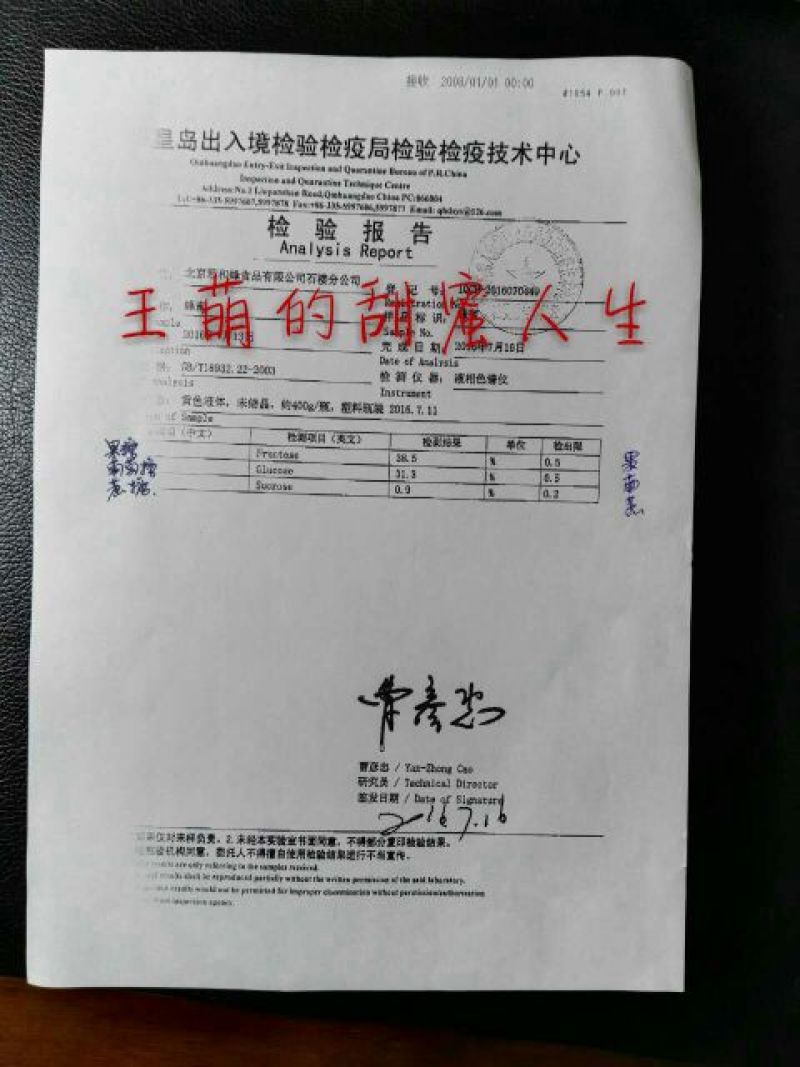 接收 2008/01/01 00:00
#1854 P.001
皇岛出入境检验检疫局检验检疫技术中心
Qinhuangdao Entry-Exit Inspection and Quarantine Bureau of P.R.China
Inspection and Quarantine Technique Centre
Address:No.1 Liupanshan Road,Qinhuangdao China PC:066004
检 验 报 告
Analysis Report
食品有限公司石楼分公司
登 记 号
王萌的甜蜜人生
样品标识:
Sample No.
完成日期: 2016年7月16日
Date of Analysis
GB/T18932.22-2003
检测仪器: 液相色谱仪
Instrument
黄色液体, 未结晶, 约400g/瓶, 塑料瓶装 2016.7.11
of Sample
(中文) 检测项目(英文) 检测结果 单位 检出限
果糖 Fructose 38.5 % 0.5 果
葡萄糖 Glucose 31.3 % 0.5 葡
蔗糖. Sucrose 0.9 % 0.2 蔗
曹彦忠
曹彦忠 / Yan-Zhong Cao
研究员 / Technical Director
签发日期 / Date of Signature
2016.7.16
结果仅对来样负责。2. 未经本实验室书面同意, 不得部分复印检验结果。
检验机构同意, 委托人不得擅自使用检验结果进行不当宣传。
results are only referring to the samples received.
results shall be reproduced partially without the written permission of the said laboratory.
results would not be permitted for improper dissemination without permission/authorisation
inspection agency.